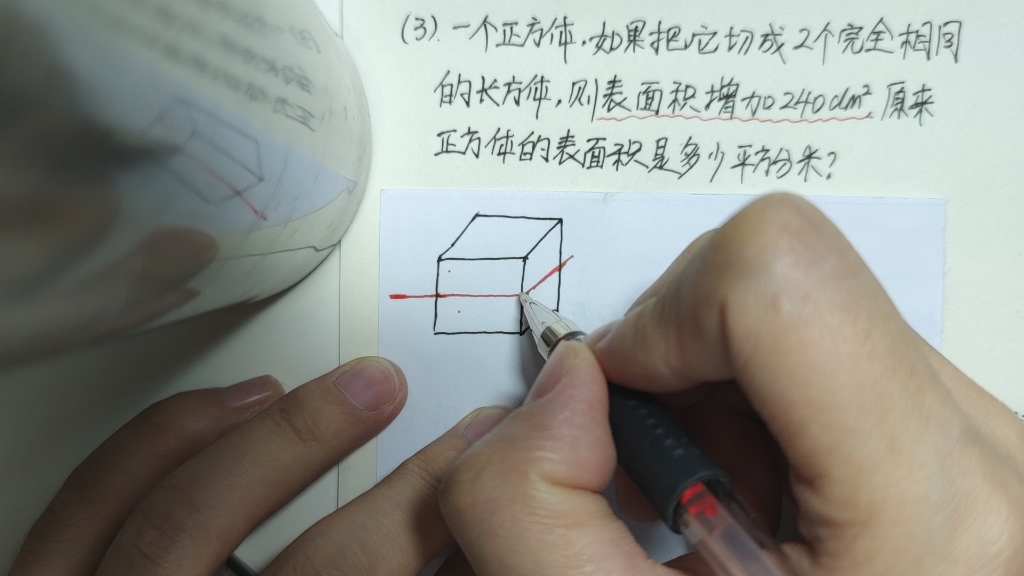 (3). 一个正方体,如果把它切成2个完全相同
的长方体,则表面积增加240dm². 原来
正方体的表面积是多少平方分米?